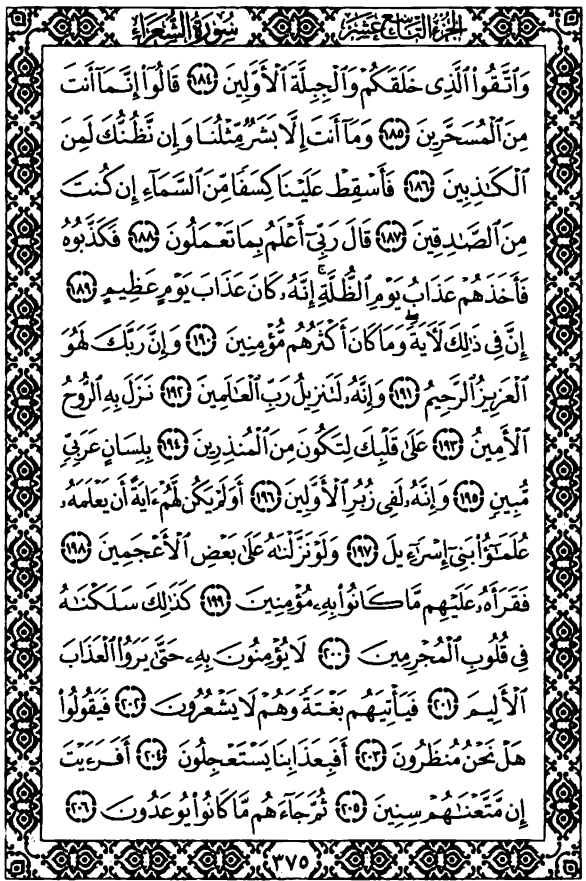 الجزء التاسع عشر سورة الشعراء
وَاتَّقُوا الَّذِى خَلَقَكُمْ وَالْجِبِلَّةَ الْأَوَّلِينَ ١٨٤ قَالُوا إِنَّمَا أَنتَ
مِنَ الْمُسَحَّرِينَ ١٨٥ وَمَا أَنتَ إِلَّا بَشَرٌ مِّثْلُنَا وَإِن نَّظُنُّكَ لَمِنَ
الْكَٰذِبِينَ ١٨٦ فَأَسْقِطْ عَلَيْنَا كِسَفًا مِّنَ السَّمَآءِ إِن كُنتَ
مِنَ الصَّٰدِقِينَ ١٨٧ قَالَ رَبِّىٓ أَعْلَمُ بِمَا تَعْمَلُونَ ١٨٨ فَكَذَّبُوهُ
فَأَخَذَهُمْ عَذَابُ يَوْمِ الظُّلَّةِ ۚ إِنَّهُۥ كَانَ عَذَابَ يَوْمٍ عَظِيمٍ ١٨٩
إِنَّ فِى ذَٰلِكَ لَءَايَةً ۖ وَمَا كَانَ أَكْثَرُهُم مُّؤْمِنِينَ ١٩٠ وَإِنَّ رَبَّكَ لَهُوَ
الْعَزِيزُ الرَّحِيمُ ١٩١ وَإِنَّهُۥ لَتَنزِيلُ رَبِّ الْعَٰلَمِينَ ١٩٢ نَزَلَ بِهِ الرُّوحُ
الْأَمِينُ ١٩٣ عَلَىٰ قَلْبِكَ لِتَكُونَ مِنَ الْمُنذِرِينَ ١٩٤ بِلِسَانٍ عَرَبِىٍّ
مُّبِينٍ ١٩٥ وَإِنَّهُۥ لَفِى زُبُرِ الْأَوَّلِينَ ١٩٦ أَوَلَمْ يَكُن لَّهُمْ ءَايَةً أَن يَعْلَمَهُۥ
عُلَمَٰٓؤُا بَنِىٓ إِسْرَٰٓءِيلَ ١٩٧ وَلَوْ نَزَّلْنَٰهُ عَلَىٰ بَعْضِ الْأَعْجَمِينَ ١٩٨
فَقَرَأَهُۥ عَلَيْهِم مَّا كَانُوا بِهِۦ مُؤْمِنِينَ ١٩٩ كَذَٰلِكَ سَلَكْنَٰهُ
فِى قُلُوبِ الْمُجْرِمِينَ ٢٠٠ لَا يُؤْمِنُونَ بِهِۦ حَتَّىٰ يَرَوُا الْعَذَابَ
الْأَلِيمَ ٢٠١ فَيَأْتِيَهُم بَغْتَةً وَهُمْ لَا يَشْعُرُونَ ٢٠٢ فَيَقُولُوا
هَلْ نَحْنُ مُنظَرُونَ ٢٠٣ أَفَبِعَذَابِنَا يَسْتَعْجِلُونَ ٢٠٤ أَفَرَءَيْتَ
إِن مَّتَّعْنَٰهُمْ سِنِينَ ٢٠٥ ثُمَّ جَآءَهُم مَّا كَانُوا يُوعَدُونَ ٢٠٦
٣٧٥